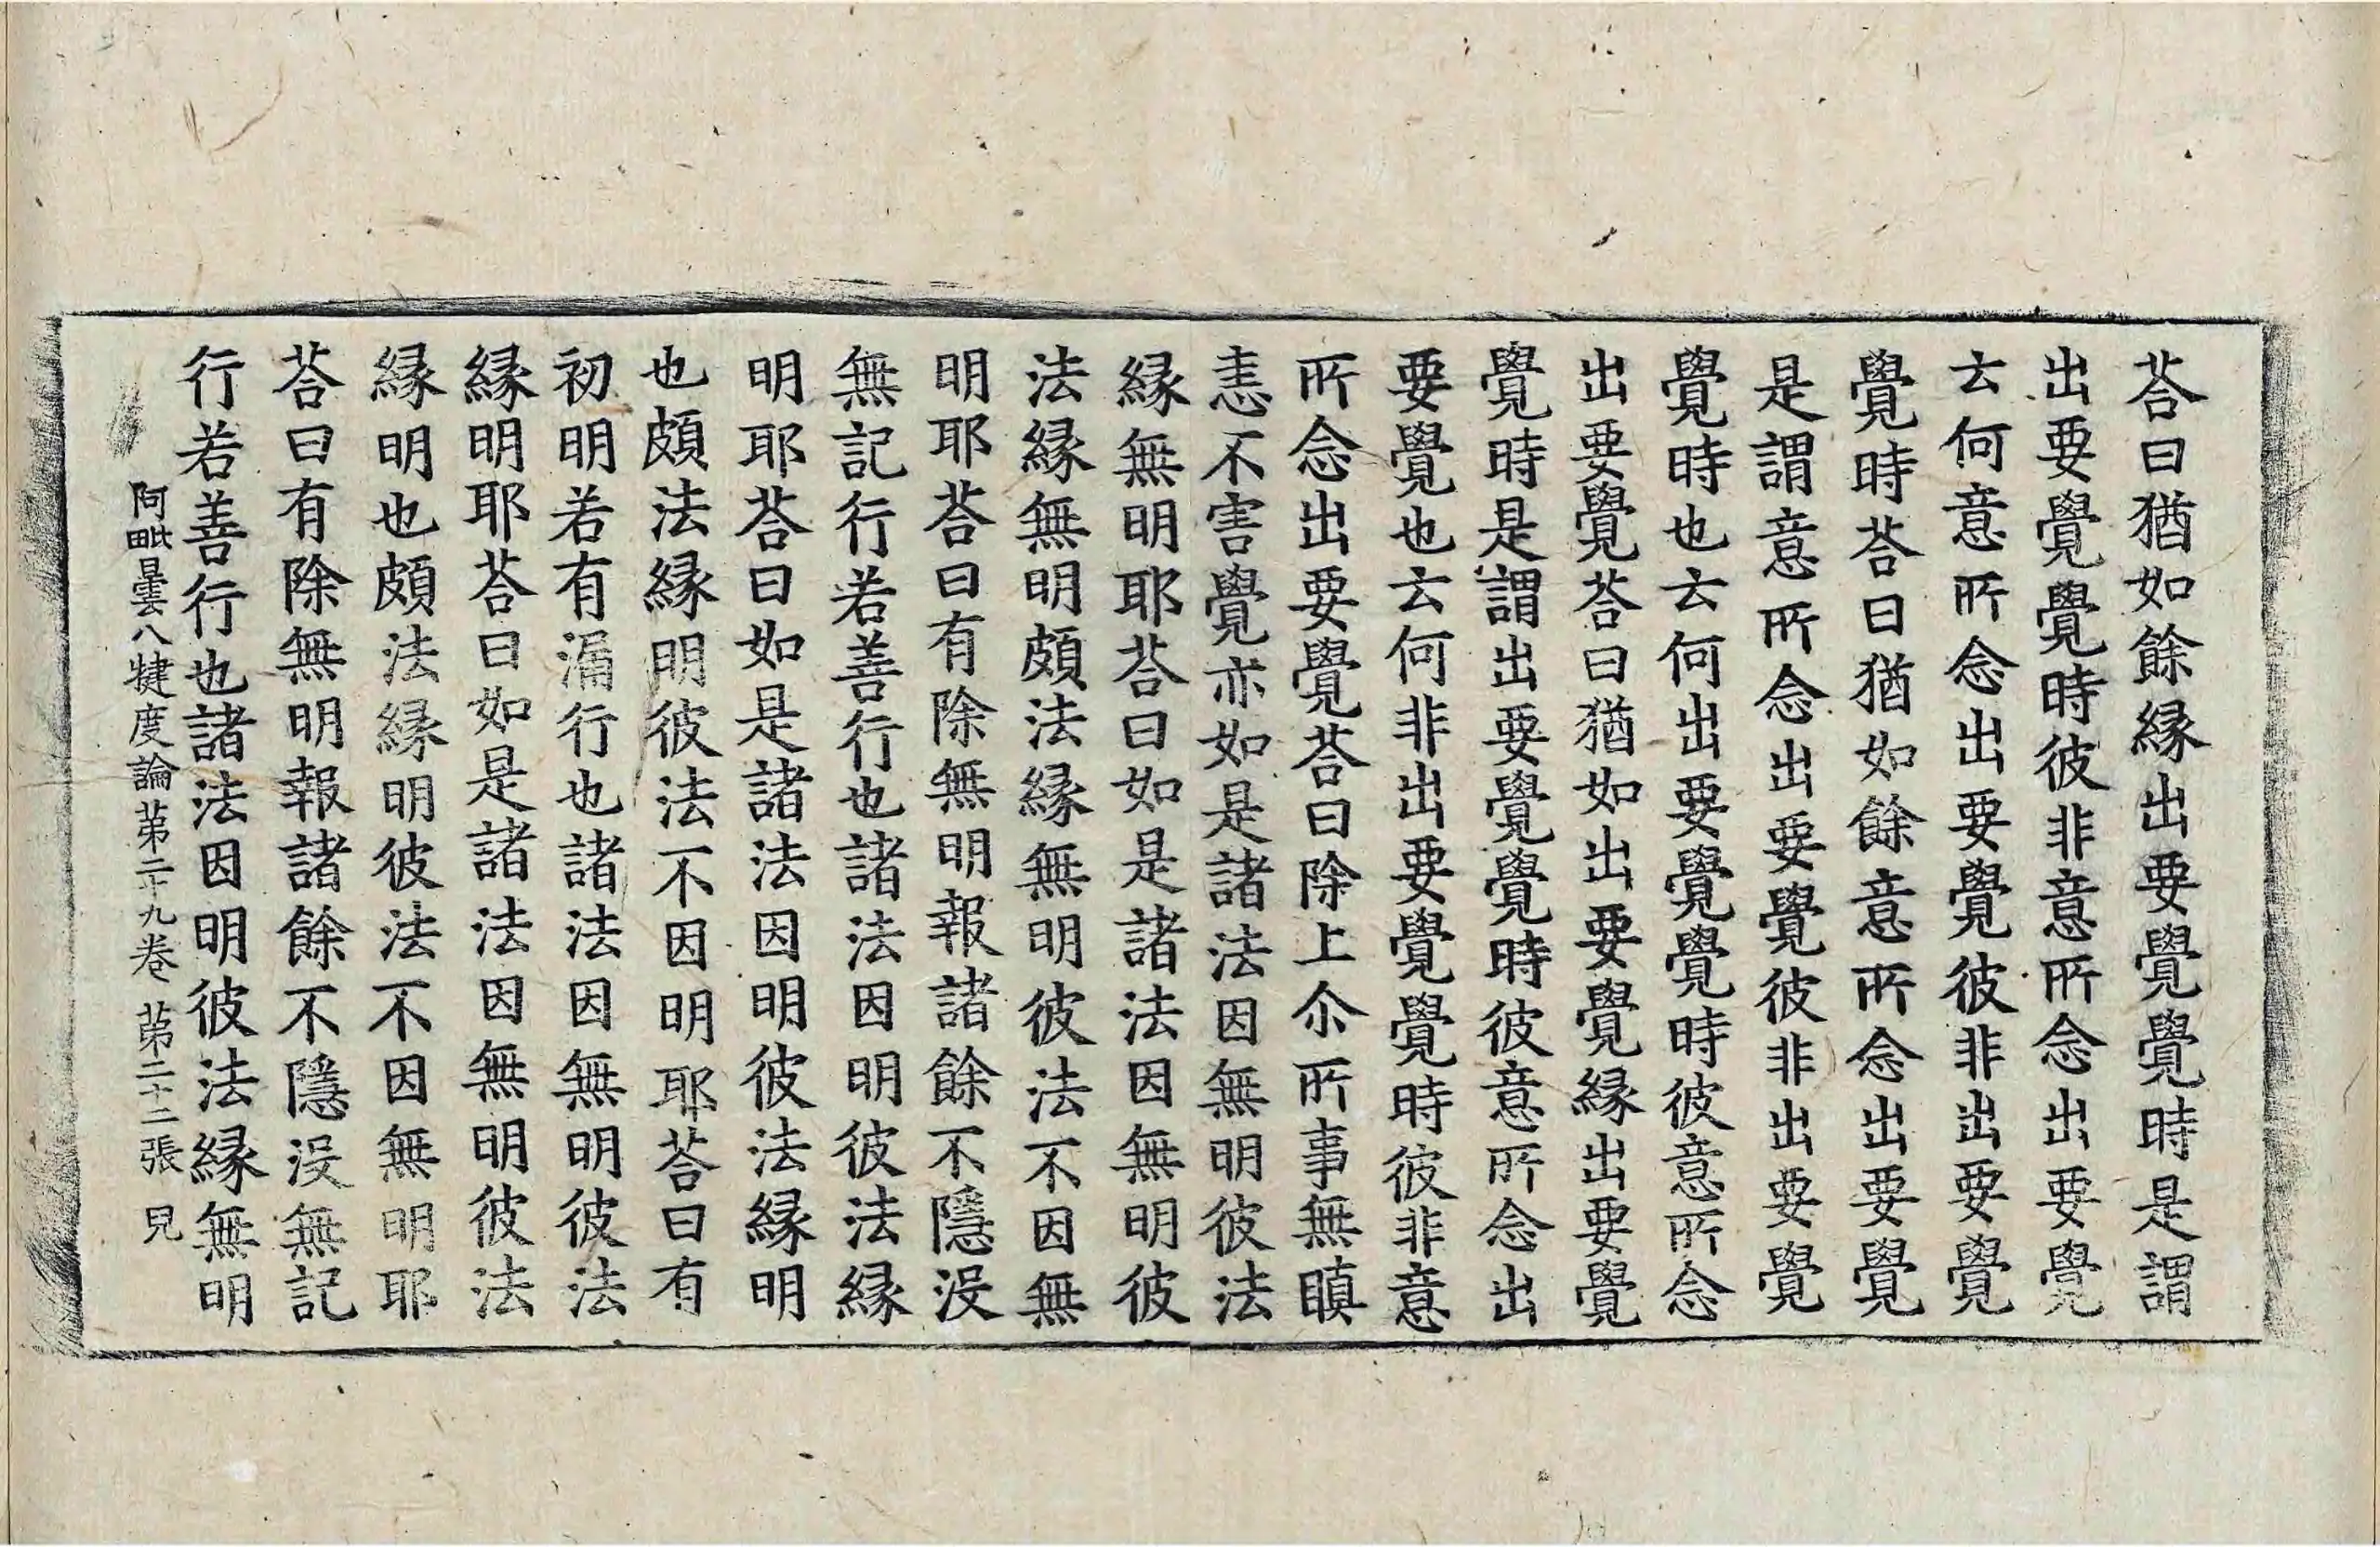 荅曰猶如餘縁出要覺覺時是謂
出要覺覺時彼非意所念出要覺
云何意所念出要覺彼非出要覺
覺時荅曰猶如餘意所念出要覺
是謂意所念出要覺彼非出要覺
覺時也云何出要覺覺時彼意所念
出要覺荅曰猶如出要覺縁出要覺
覺時是謂出要覺覺時彼意所念出
要覺也云何非出要覺覺時彼非意
所念出要覺荅曰除上尒所事無瞋
恚不害覺亦如是諸法因無明彼法
縁無明耶荅曰如是諸法因無明彼
法縁無明頗法縁無明彼法不因無
明耶荅曰有除無明報諸餘不隱没
無記行若善行也諸法因明彼法縁
明耶荅曰如是諸法因明彼法縁明
也頗法縁明彼法不因明耶荅曰有
初明若有漏行也諸法因無明彼法
縁明耶荅曰如是諸法因無明彼法
縁明也頗法縁明彼法不因無明耶
荅曰有除無明報諸餘不隱没無記
行若善行也諸法因明彼法縁無明
阿毗曇八犍度論苐二十九卷 苐二十二張 兒